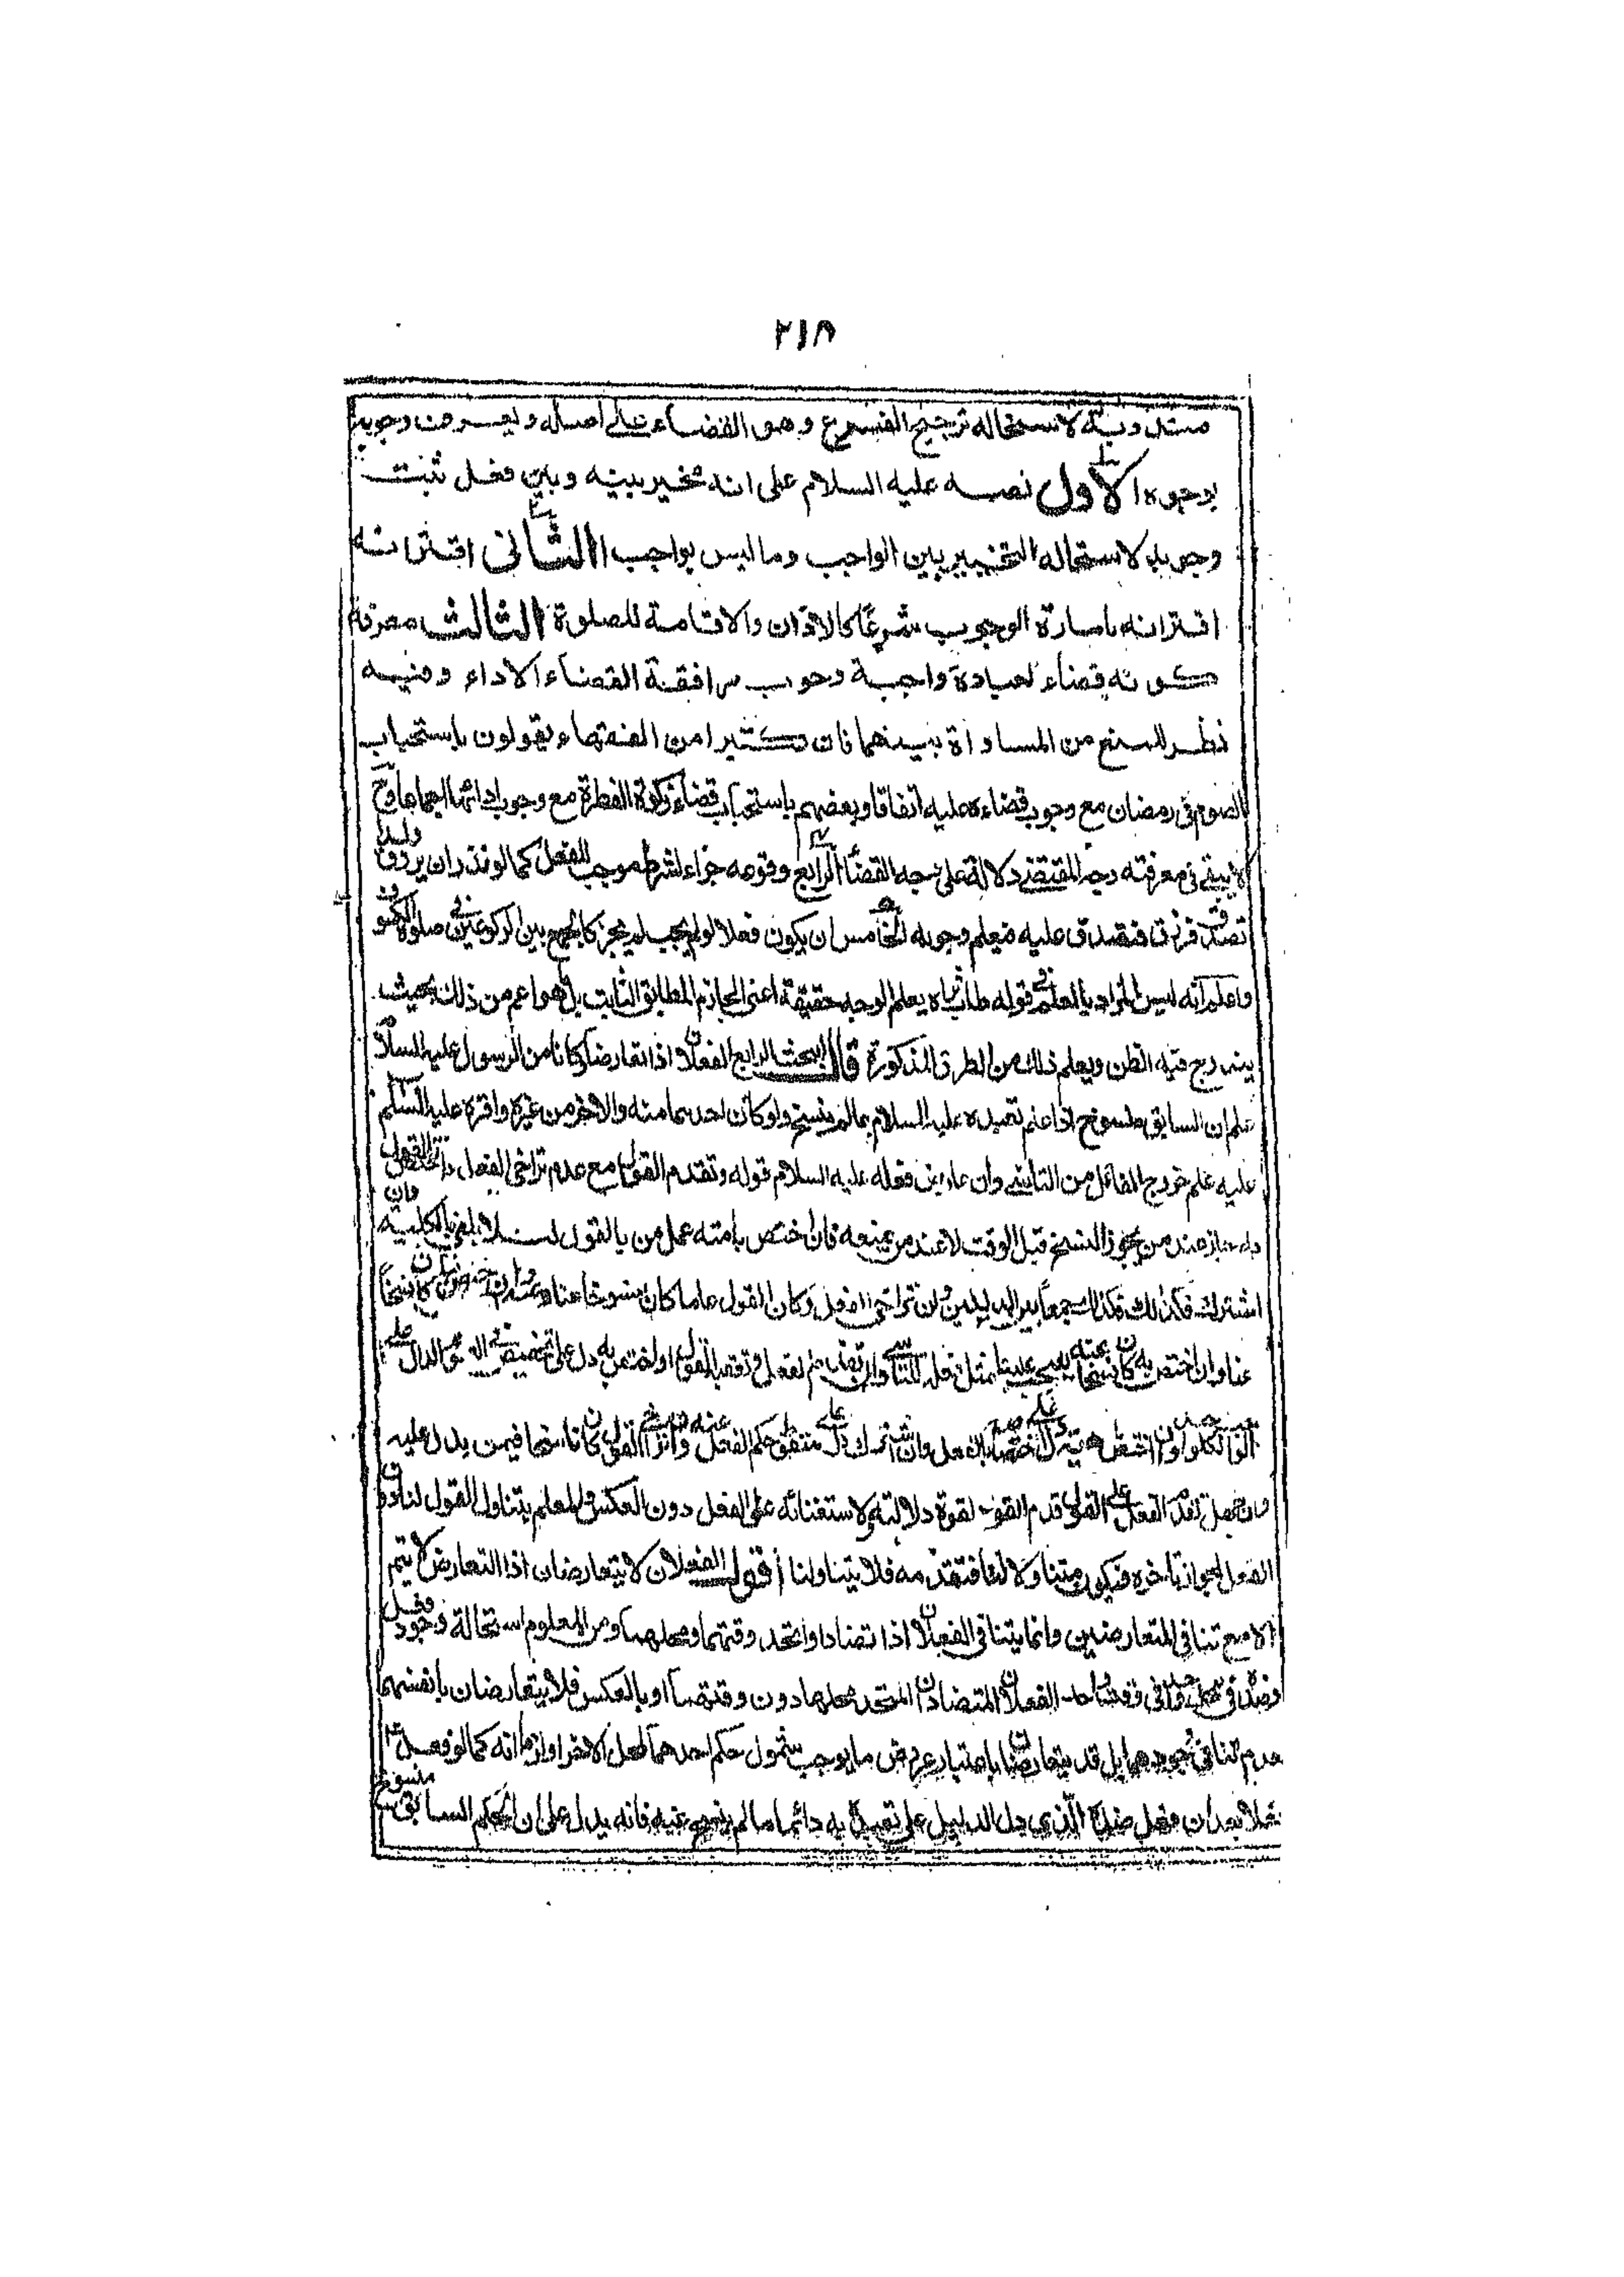 ٢١٨
مندوبة لاستحالة ترجيح الفرع وهو القضاء على اصله ويعرف وجوبه
بوجوه الاول نصه عليه السلام على انه مخير بينه وبين فعل ثبت
وجوبه لاستحالة التخيير بين الواجب وما ليس بواجب الثاني اقترانه
اقترانه بامارة الوجوب شرعًا كالاذان والاقامة للصلوة الثالث معرفة
كونه قضاء لعبادة واجبة وجوب مرافقة القضاء الاداء وفيه
نظر للمنع من المساواة بينهما فان كثيرا من الفقهاء يقولون باستحباب
الصوم في رمضان مع وجوب قضاءه عليه اتفاقا وبعضهم باستحباب قضاء زكوة الفطرة مع وجوب ادائها
لا يبقى في معرفته وجه المقتضي دلالة على وجه القضاء الرابع وقوعه جزاء لشرط موجب للفعل كما لو نذر ان يرزق ولدا
تصدق فرزق فتصدق عليه فيعلم وجوبه الخامس ان يكون فعلا لو لم يجب لم يجز كالجمع بين الركوعين في صلوة الكسوف
واعلم انه ليس المراد بالعلم في قوله طاب ثراه يعلم الوجه حقيقة اعنى الجازم المطابق الثابت بل هو اعم من ذلك بحيث
يندرج فيه الظن ويعلم ذلك من الطرق المذكورة قال البحث الرابع الفعلان اذا تعارضا وكانا من الرسول عليه السلام
علم ان السابق منسوخ اذا علم تعبده عليه السلام بمالم ينسخ ولو كان احدهما منه والاخر من غيره واقره عليه السلم
عليه علم خروج الفاعل من التأسي وان عارض فعله عليه السلام قوله وتقدم القول مع عدم تراخي الفعل واختص القول
به جاز عند من يجوز النسخ قبل الوقت لا عند من يمنعه فان اختص بامته عمل من بالقول لئلا يلغى بالكلية وان
اشترك فكذلك فكذلك جمعا بين الدليلين وان تراخى الفعل وكان القول عاما كان منسوخا عنا وعنه
عنا وان اختص به كان نسخا عنه يجب علينا مثل فعله للتأسي وان تقدم الفعل وتعقبه القول او اختص به دل على تخصيص
متفق حكم الفعل عنه القول كان ناسخا فيمن يدل عليه
تقدم الفعل على القول قدم القول لقوة دلالته ولاستغنائه على الفعل دون العكس ولعلم بتناول القول لنا دون
الفعل لجواز تأخره فيكون متناولا لنا فتقدمه فلا يتناولنا اقول الفعلان لا يتعارضان اذ التعارض لا يتم
الا مع تنافي المتعارضين وانما يتنافى الفعلان اذا تضادا واتحد وقتهما ومحلهما ومن المعلوم استحالة وجود فعل
وضده في محل واحد في وقت واحد الفعلان المتضادان المتحد محلهما دون وقتهما او بالعكس فلا يتعارضان بانفسهما
عدم تنافي وجودهما بل قد يتعارضان باعتبار عرض ما يوجب شمول حكم احدهما لمحل الاخر او زمانه كما لو فعل
فعلا بعد ان فعل ضده الذي دل الدليل على تعبده به دائما ما لم ينسخ عنه فانه يدل على ان الحكم السابق منسوخ